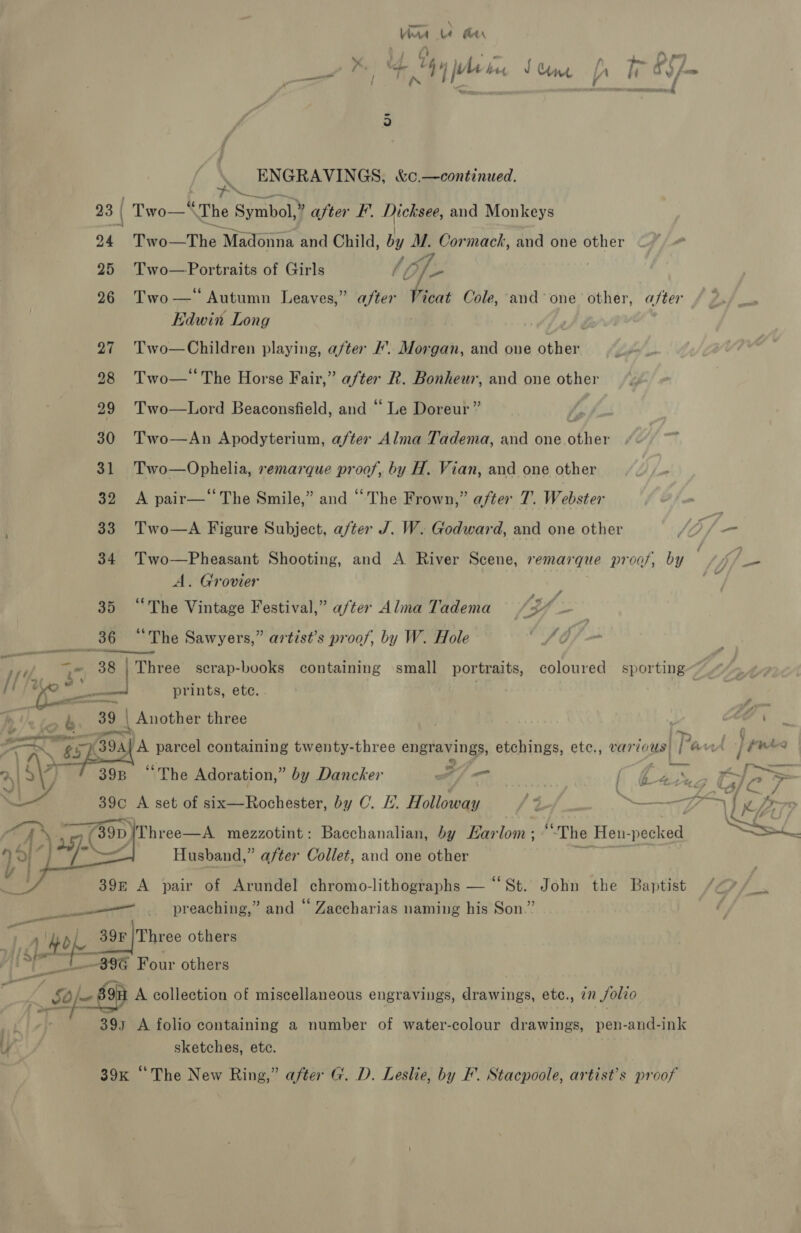 5
ENGRAVINGS, &c.—continued.
23 Two—“The Symbol,” after F. Dicksee, and Monkeys
24 Two—The Madonna and Child, by M. Cormack, and one other
25 Two—Portraits of Girls 10/-
26 Two—“Autumn Leaves,” after Vicat Cole, and one other, after
Edwin Long
27 Two—Children playing, after F. Morgan, and one other
28 Two—“The Horse Fair,” after R. Bonheur, and one other
29 Two—Lord Beaconsfield, and “Le Doreur”
30 Two—An Apodyterium, after Alma Tadema, and one other
31 Two—Ophelia, remarque proof, by H. Vian, and one other
32 A pair—“The Smile,” and “The Frown,” after T. Webster
33 Two—A Figure Subject, after J. W. Godward, and one other 10/-
34 Two—Pheasant Shooting, and A River Scene, remarque proof, by
A. Grovier
35 “The Vintage Festival,” after Alma Tadema
36 “The Sawyers,” artist's proof, by W. Hole 10/-
38 Three scrap-books containing small portraits, coloured sporting
prints, etc.
39 Another three
39A A parcel containing twenty-three engravings, etchings, etc., various
39B “The Adoration,” by Dancker
39C A set of six—Rochester, by C. E. Holloway
39D Three—A mezzotint: Bacchanalian, by Earlom; “The Hen-pecked
Husband,” after Collet, and one other
39E A pair of Arundel chromo-lithographs—“St. John the Baptist
preaching,” and “Zaccharias naming his Son.”
39F Three others
39G Four others
39H A collection of miscellaneous engravings, drawings, etc., in folio
39J A folio containing a number of water-colour drawings, pen-and-ink
sketches, etc.
39K “The New Ring,” after G. D. Leslie, by F. Stacpoole, artist's proof